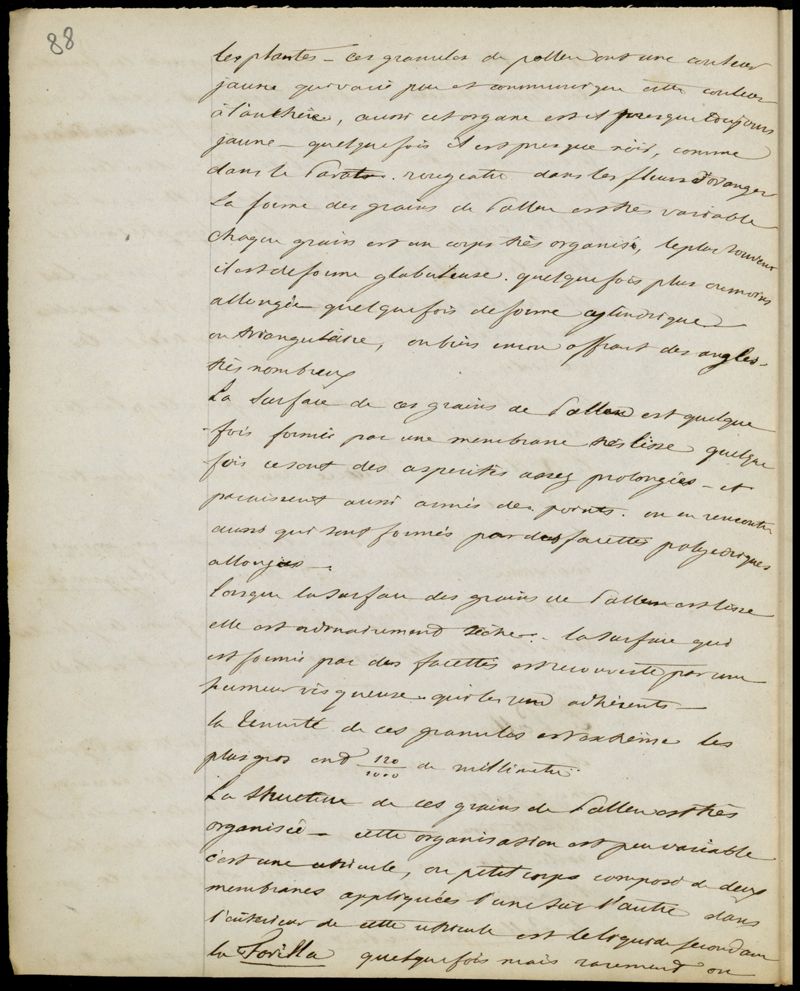 88
les plantes – ces granules de pollen ont une couleur
jaune qui varie peu et communique cette couleur
à l'anthère, aussi cet organe est il presque toujours
jaune – quelquefois il est presque noir, comme
dans le rougeatre dans les fleurs d'oranger
La forme des grains de Pollen est très variable
chaque grain est un corps très organisé, le plus souvent
il est de forme globuleuse. quelquefois plus ou moins
allongée quelquefois de forme cylindrique
ou triangulaire, ou bien encore offrant des angles
très nombreux
La surface de ces grains de Pollen est quelque
fois formée par une membrane très lisse quelque
fois ce sont des asperités assez prolongées – et
paraissent aussi armés des points. on en rencontre
aussi qui sont formés par des facettes polyedriques
allongées –
lorsque la surface des grains de Pollen est lisse
elle est ordinairement sèche. – la surface qui
est formée par des facettes est recouverte par une
humeur visqueuse qui les rend adhérents –
la tenuité de ces granules est extrême les
plus gros ont 120/1000 de millimetre.
La structure de ces grains de Pollen est très
organisée – cette organisation est peu variable
c'est une utricule, ou petit corps composé de deux
membranes appliquées l'une sur l'autre dans
l'intérieur de cette utricule est le liquide fecondant
la Fovilla quelquefois mais rarement on